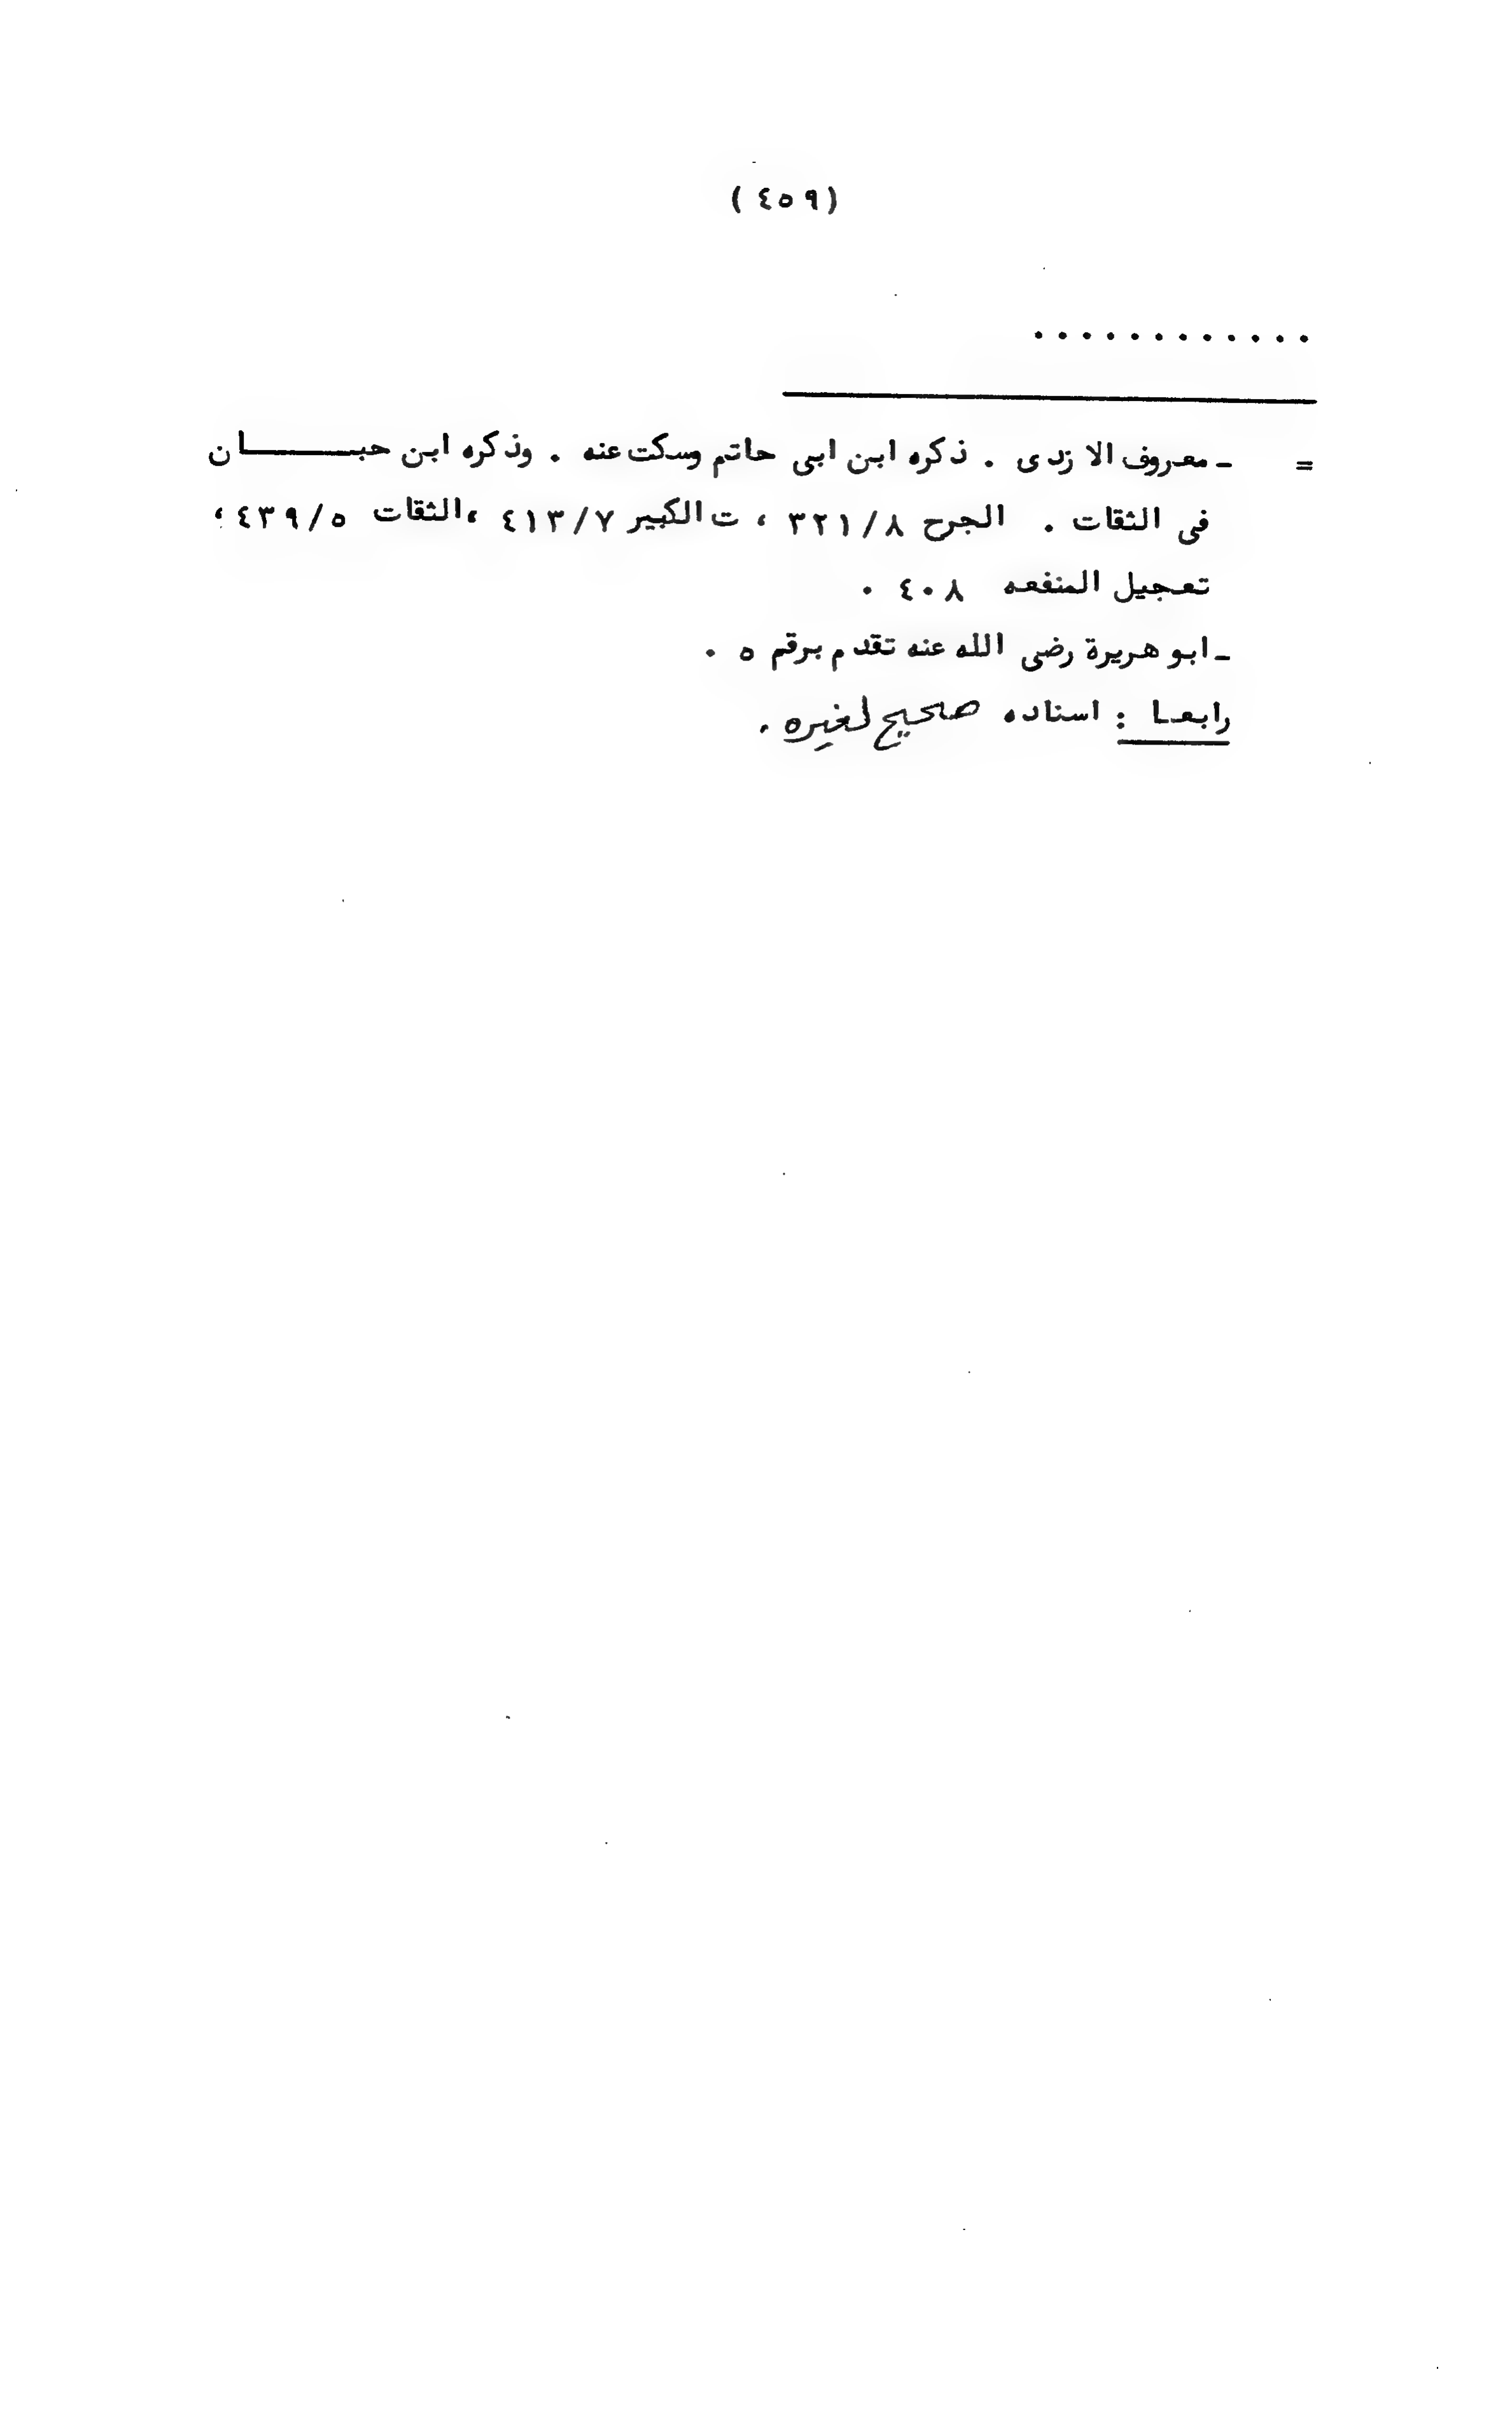 (٤٥٩)
............
= ـ معروف الازدى . ذكره ابن ابى حاتم وسكت عنه . وذكره ابن حبـــــان
فى الثقات . الجرح ٣٢١/٨ ، ت الكبير ٤١٣/٧ ،الثقات ٤٣٩/٥ ،
تعجيل المنفعه ٤٠٨ .
ـ ابو هريرة رضى الله عنه تقدم برقم ٥ .
رابعا : اسناده صحيح لغيره .